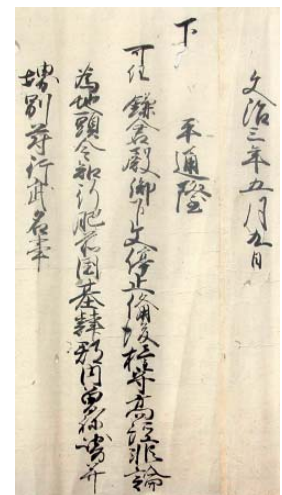 文治三年五月九日
下　平通隆
可任鎌倉殿御下文停止備後権守高経非論
為地頭令知行肥前国基肄郡内曽祢崎并
堺別符行武名事